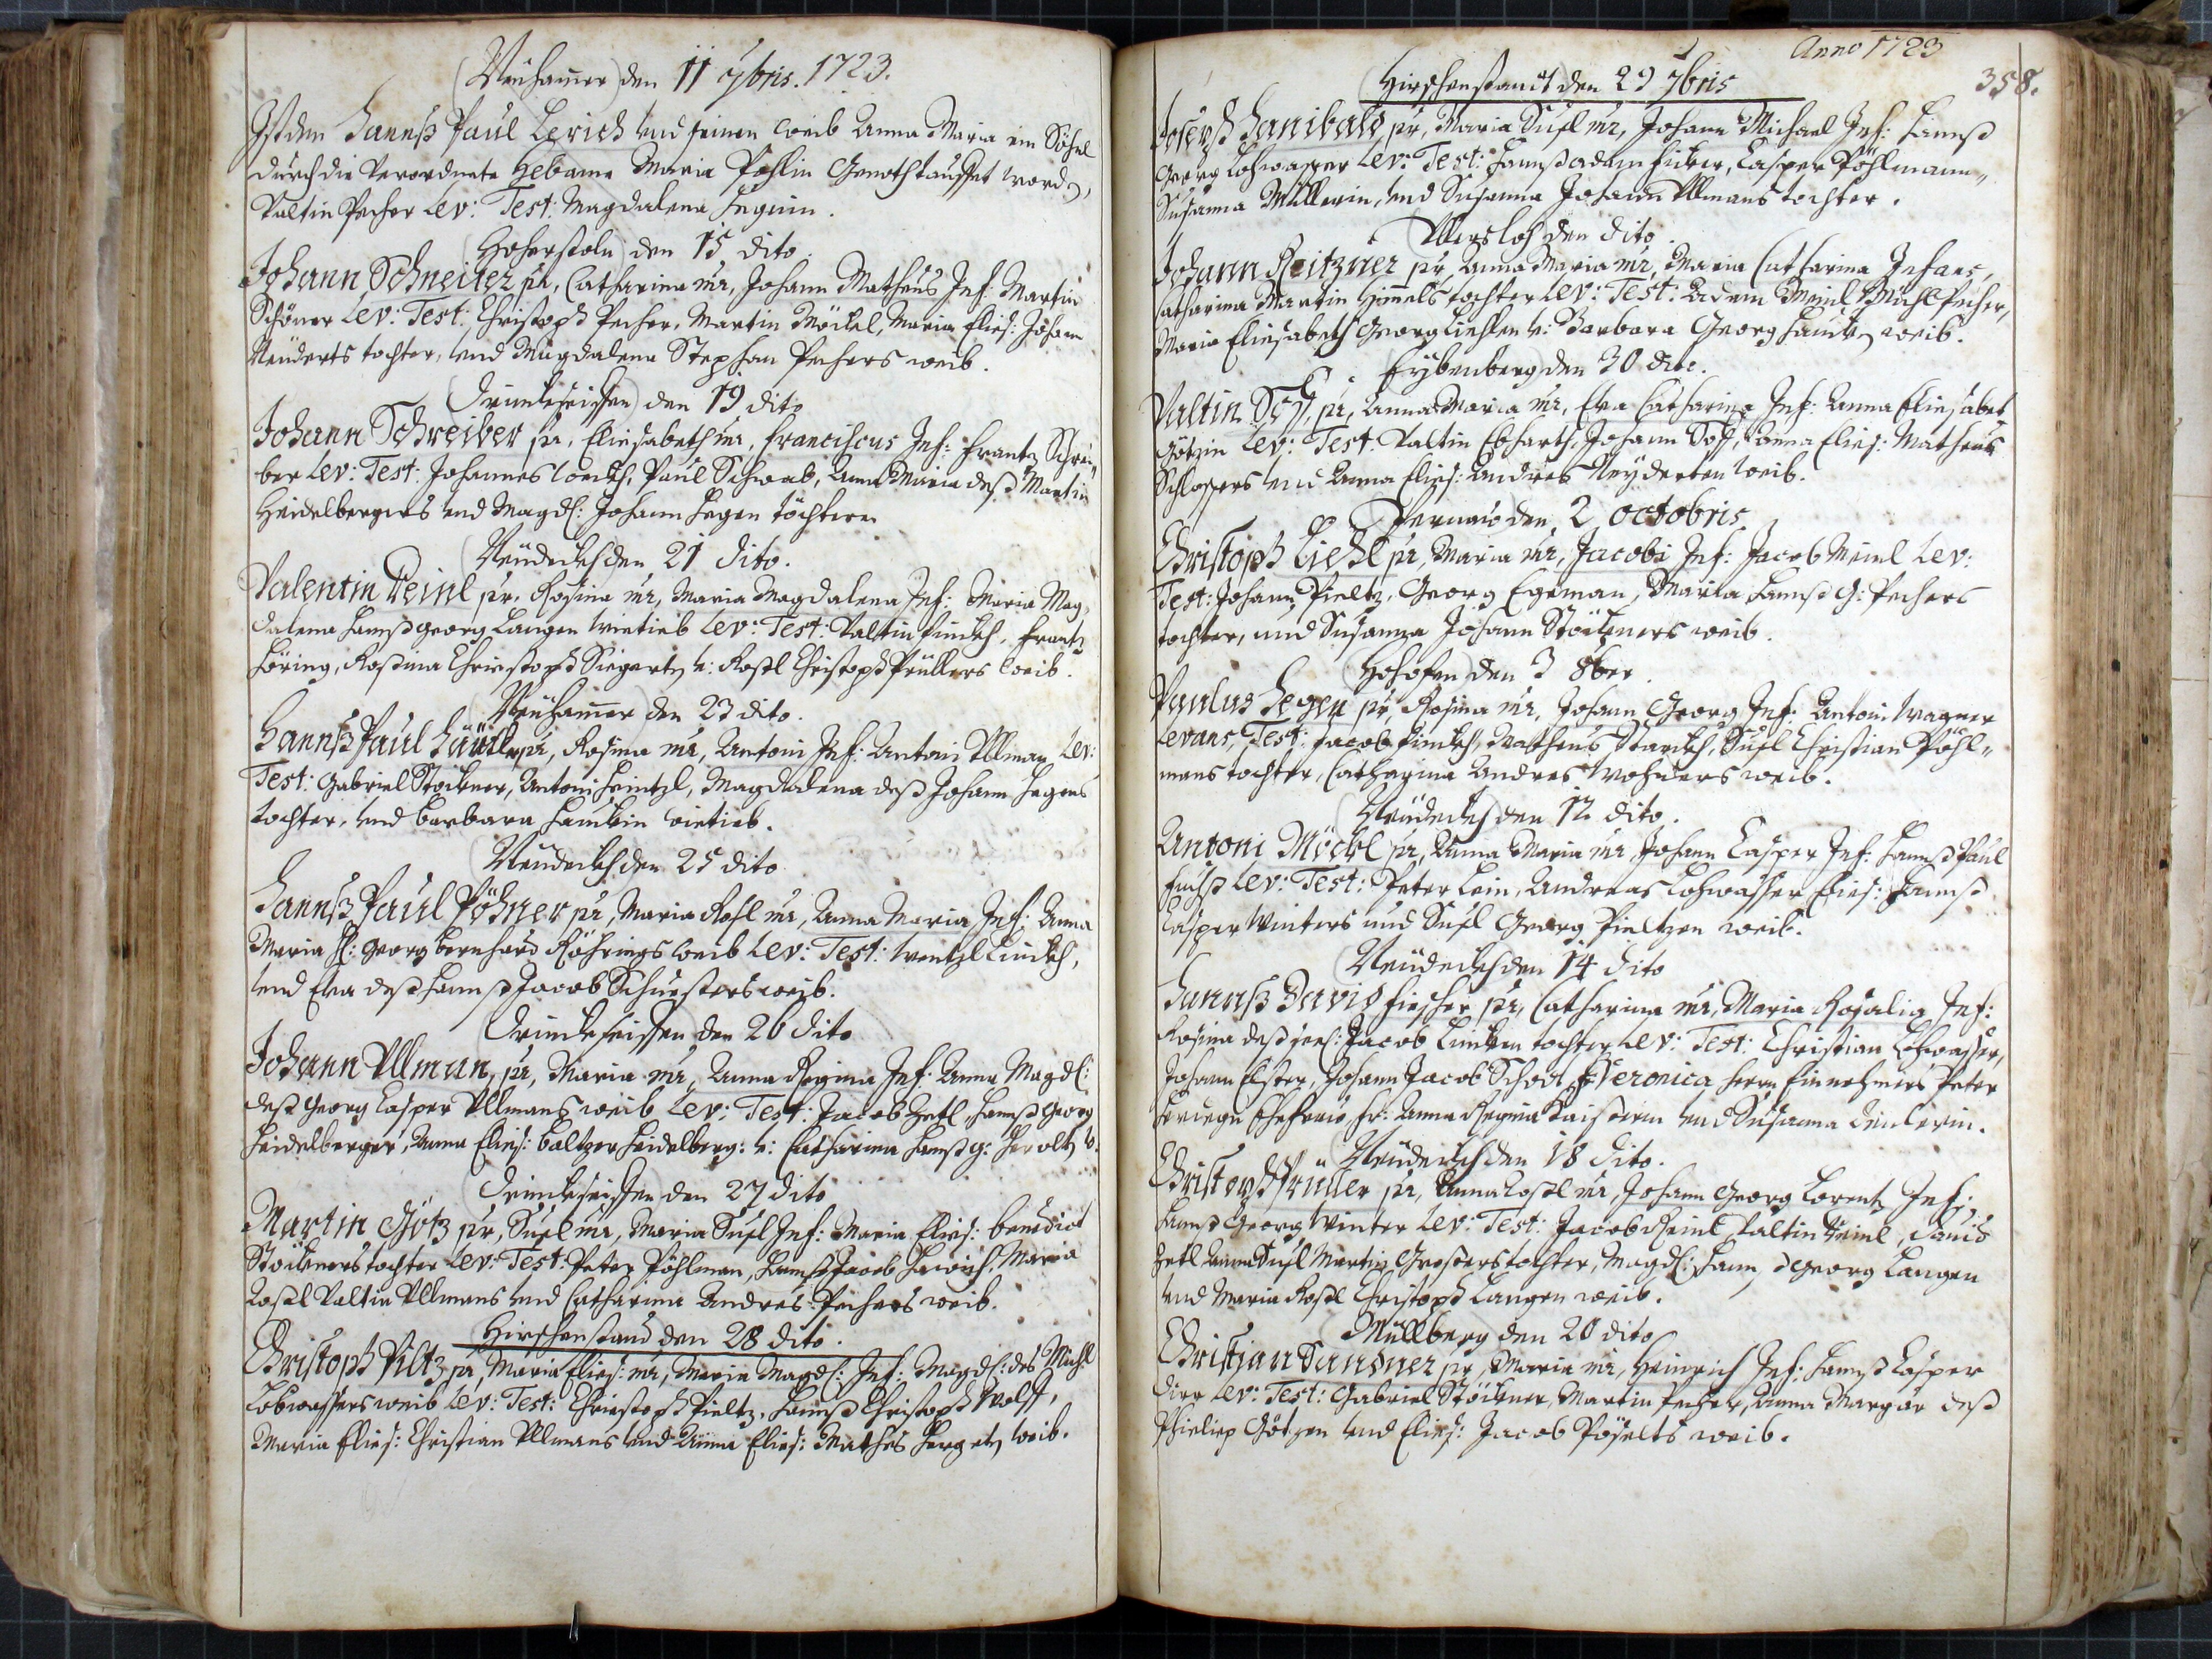 Neuhamer den 11 7bris. 1723.
Ist dem Hannß Paul Lerich und seinen Weib Anna Maria ein Söhnl
durch die Verordnete Hebame Maria Pöhlin Genothtauffet word,
Valtin Pecher Lev: Test: Magdalena
Hoherstoln den 15 dito.
Johann Schneider pr, Catharina mr, Johann Matheus Inf: Martin
Schöner Lev: Test: Christoph Pecher, Martin Möckel, Maria Elies: Johann
Neüderts tochter, und Magdalena Stephan Pechers weib.
Trinckseiffen den 19 dito
Johann Schreiber pr, Eliesabeth mr, Franciscus Inf: Frantz Schrei„
ber Lev: Test: Johannes, Paul Schwab, Anna Maria deß Martin
Heidelbergers und Magdl: Johann Hegen töchtern
Neüdeckh den 21 dito.
Valentin Reinl pr, Rosina mr, Maria Magdalena Inf: Maria Mag„
dalena Hannß Georg Langen Wietieb Lev: Test: Valtin Linckh, Frantz
Höring, Rosina Christoph Siegerts u: Rosl Christoph Prüllers Weib.
Neuhamer den 23 dito.
Hannß Paul pr, Rosina mr, Antoni Inf: Antoni Ullman Lev:
Test: Gabriel Stöckner, Antoni Heintzl, Magdalena deß Johann Hegens
tochter, und Barbara wietieb.
Neüdeckh den 25 dito
Hannß Paul Pöhner pr, Maria Rosl mr, Anna Maria Inf: Anna
Maria H: Georg Bernhard Röhrings Weib Lev: Test: Wentzl Linckh,
und Eva deß Hannß Jacob Schusters weib.
Trinckseiffen den 26 dito
Johann Ullman, pr, Maria mr, Anna Regina Inf: Anna Magdl:
deß Georg Casper Ullmans weib Lev: Test: Jacob Zetl, Hannß Georg
Heidelberger, Anna Elies: Baltzer Heidelberg: u: Catharina Hannß G: Herolts w.
Trinckseiffen den 27 dito
Martin Götz pr, Susl mr, Maria Susl Inf: Maria Elies: Benedict
Stöckners tochter Lev: Test: Peter Pöhlman, Hannß Jacob, Maria
Rosl Valtin Ullmans und Catharina Andres Pechers weib.
Hirschenstand den 28 dito.
Christoph Piltz pr, Maria Elies: mr, Maria Magdl: Inf: Magdl: des Michl
Lohwassers weib Lev: Test: Christoph Pieltz, Hannß Christoph Wolff,
Maria Elies: Christian Ullmans und Anna Elies: Mathes weib.
Anno 1723
358.
Hirschenstandt den 29 7bris
Joseph Hanibald pr, Maria Susl mr, Johann Michael Inf: Hannß
Georg Lohwasser Lev: Test: Hannß Adam, Casper Pöhlmann„
Susanna Müllerin, und Susanna Johann Ullmans tochter.
Ullersloh den dito.
Johann Reitzner pr, Anna Maria mr, Maria Catharina Infans,
Catharina Martin Himels tochter Lev: Test: Adam Meinl, Michl Pecher,
Maria Eliesabeth Georg u: Barbara Georg weib.
Eybenberg den 30 dito.
Valtin pr, Anna Maria mr, Eva Catharina Inf: Anna Eliesabet
Götzin Lev: Test: Valtin Ebharth, Johann, Anna Elies: Matheus
Schlossers und Anna Elies: Andres Neyderten weib.
Pernau den 2 octobris
Christoph Liehl pr, Maria mr, Jacobi Inf: Jacob Meinl Lev:
Test: Johann Pieltz, Georg Egeman, Maria Hannß G: Pechers
tochter, und Susanna Johann Stöckners weib.
Hohofen den 3 8ber.
Paulus Hegen pr, Rosina mr, Johann Georg Inf: Antoni Wagner
Levans, Test: Jacob Linckh, Matheus Starckh, Susl Christian Pöhl„
mans tochter, Catharina Andres weib.
Neüdeckh den 12 dito.
Antoni Möckl pr, Anna Maria mr, Johann Casper Inf: Hannß Paul
Fuchß Lev: Test: Peter Lein, Andreas Lohwasser, Elies: Hannß
Casper Winters und Susl Georg Pieltzen weib.
Neüdeckh den 14 dito
Hannß David Fischer pr, Catharina mr, Maria Rosalia Inf:
Rosina deß Jacob Lincken tochter Lev: Test: Christian Lohwasser,
Johann Elster, Johann Jacob Schodt, Fr: Veronica Herrn Einnehmers Peter
Ehefrau, Fr: Anna Regina und Susanna
Neüdeckh den 18 dito.
Christoph Prüller pr, Anna Rosl mr, Johann Georg Lorentz Inf:
Hannß Georg Winter Lev: Test: Jacob Reinl, Valtin Reinl, David
Zetl, Anna Susl Martin tochter, Magdl: Hannß Georg Langen
und Maria Rosl Christoph Langen weib.
Müllberg den 20 dito
Christian Sandner pr, Maria mr, Heinrich Inf: Hannß Casper
Dirr Lev: Test: Gabriel Stöckner, Martin Pecher, Anna Margar deß
Phieliep Götzen und Elies: Jacob Pöselts weib.